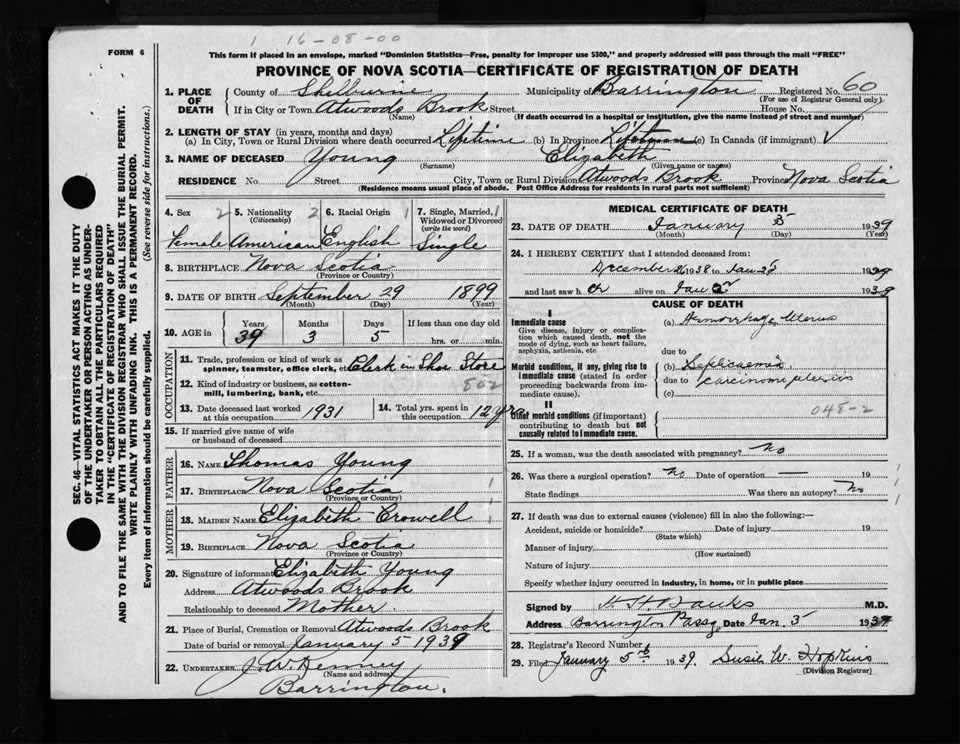 1 16-08-00
FORM 6
This form if placed in an envelope, marked "Dominion Statistics—Free, penalty for improper use $300," and properly addressed will pass through the mail "FREE"
PROVINCE OF NOVA SCOTIA—CERTIFICATE OF REGISTRATION OF DEATH
SEC. 46—VITAL STATISTICS ACT MAKES IT THE DUTY
OF THE UNDERTAKER OR PERSON ACTING AS UNDER-
TAKER TO OBTAIN ALL THE PARTICULARS REQUIRED
IN THE "CERTIFICATE OF REGISTRATION OF DEATH"
AND TO FILE THE SAME WITH THE DIVISION REGISTRAR WHO SHALL ISSUE THE BURIAL PERMIT.
WRITE PLAINLY WITH UNFADING INK. THIS IS A PERMANENT RECORD.
Every item of information should be carefully supplied. (See reverse side for instructions.)
1. PLACE OF DEATH County of Shelburne Municipality of Barrington Registered No. 60
(For use of Registrar General only)
If in City or Town Atwoods Brook Street House No.
(Name) (If death occurred in a hospital or institution, give the name instead of street and number)
2. LENGTH OF STAY (in years, months and days)
(a) In City, Town or Rural Division where death occurred Lifetime (b) In Province Lifetime (c) In Canada (if immigrant) ✓
3. NAME OF DECEASED Young Elizabeth
(Surname) (Given name or names)
RESIDENCE No. Street City, Town or Rural Division Atwoods Brook Province Nova Scotia
(Residence means usual place of abode. Post Office Address for residents in rural parts not sufficient)
4. Sex 2 5. Nationality 2 6. Racial Origin 1 7. Single, Married, 1
(Citizenship) Widowed or Divorced
(write the word)
Female American English Single
8. BIRTHPLACE Nova Scotia
(Province or Country)
9. DATE OF BIRTH September 29 1899
(Month) (Day) (Year)
10. AGE in Years Months Days If less than one day old
39 3 5 hrs. or min.
OCCUPATION
11. Trade, profession or kind of work as
spinner, teamster, office clerk, etc. Clerk in Shoe Store
12. Kind of industry or business, as cotton-
mill, lumbering, bank, etc. 802
13. Date deceased last worked
at this occupation 1931
14. Total yrs. spent in
this occupation 12 yrs
15. If married give name of wife
or husband of deceased
FATHER
16. NAME Thomas Young
17. BIRTHPLACE Nova Scotia 1
(Province or Country)
MOTHER
18. MAIDEN NAME Elizabeth Crowell
19. BIRTHPLACE Nova Scotia 1
(Province or Country)
20. Signature of informant Elizabeth Young
Address Atwoods Brook
Relationship to deceased Mother
21. Place of Burial, Cremation or Removal Atwoods Brook
Date of burial or removal January 5 1939
22. UNDERTAKER J. W. Kenney
(Name and address)
Barrington.
MEDICAL CERTIFICATE OF DEATH
23. DATE OF DEATH January 5 1939
(Month) (Day) (Year)
24. I HEREBY CERTIFY that I attended deceased from:
December 1938 to Jan 5 1939
and last saw her alive on Jan 1939
CAUSE OF DEATH
I
Immediate cause (a) Hemorrhage Uterus
Give disease, injury or complica-
tion which caused death, not the
mode of dying, such as heart failure,
asphyxia, asthenia, etc due to
Morbid conditions, if any, giving rise to (b) Septicaemia
immediate cause (stated in order due to carcinoma uterus
proceeding backwards from im-
mediate cause). (c)
II
Other morbid conditions (if important) 048-2
contributing to death but not
causally related to immediate cause.
25. If a woman, was the death associated with pregnancy? no
26. Was there a surgical operation? no Date of operation — 19 1
State findings Was there an autopsy? no 1
27. If death was due to external causes (violence) fill in also the following:—
Accident, suicide or homicide? Date of injury 19
(State which)
Manner of injury
(How sustained)
Nature of injury
Specify whether injury occurred in industry, in home, or in public place
Signed by H. H. Banks M.D.
Address Barrington Passg Date Jan. 5 1939
28. Registrar's Record Number
29. Filed January 5th 1939. Susie W. Hopkins
(Division Registrar)